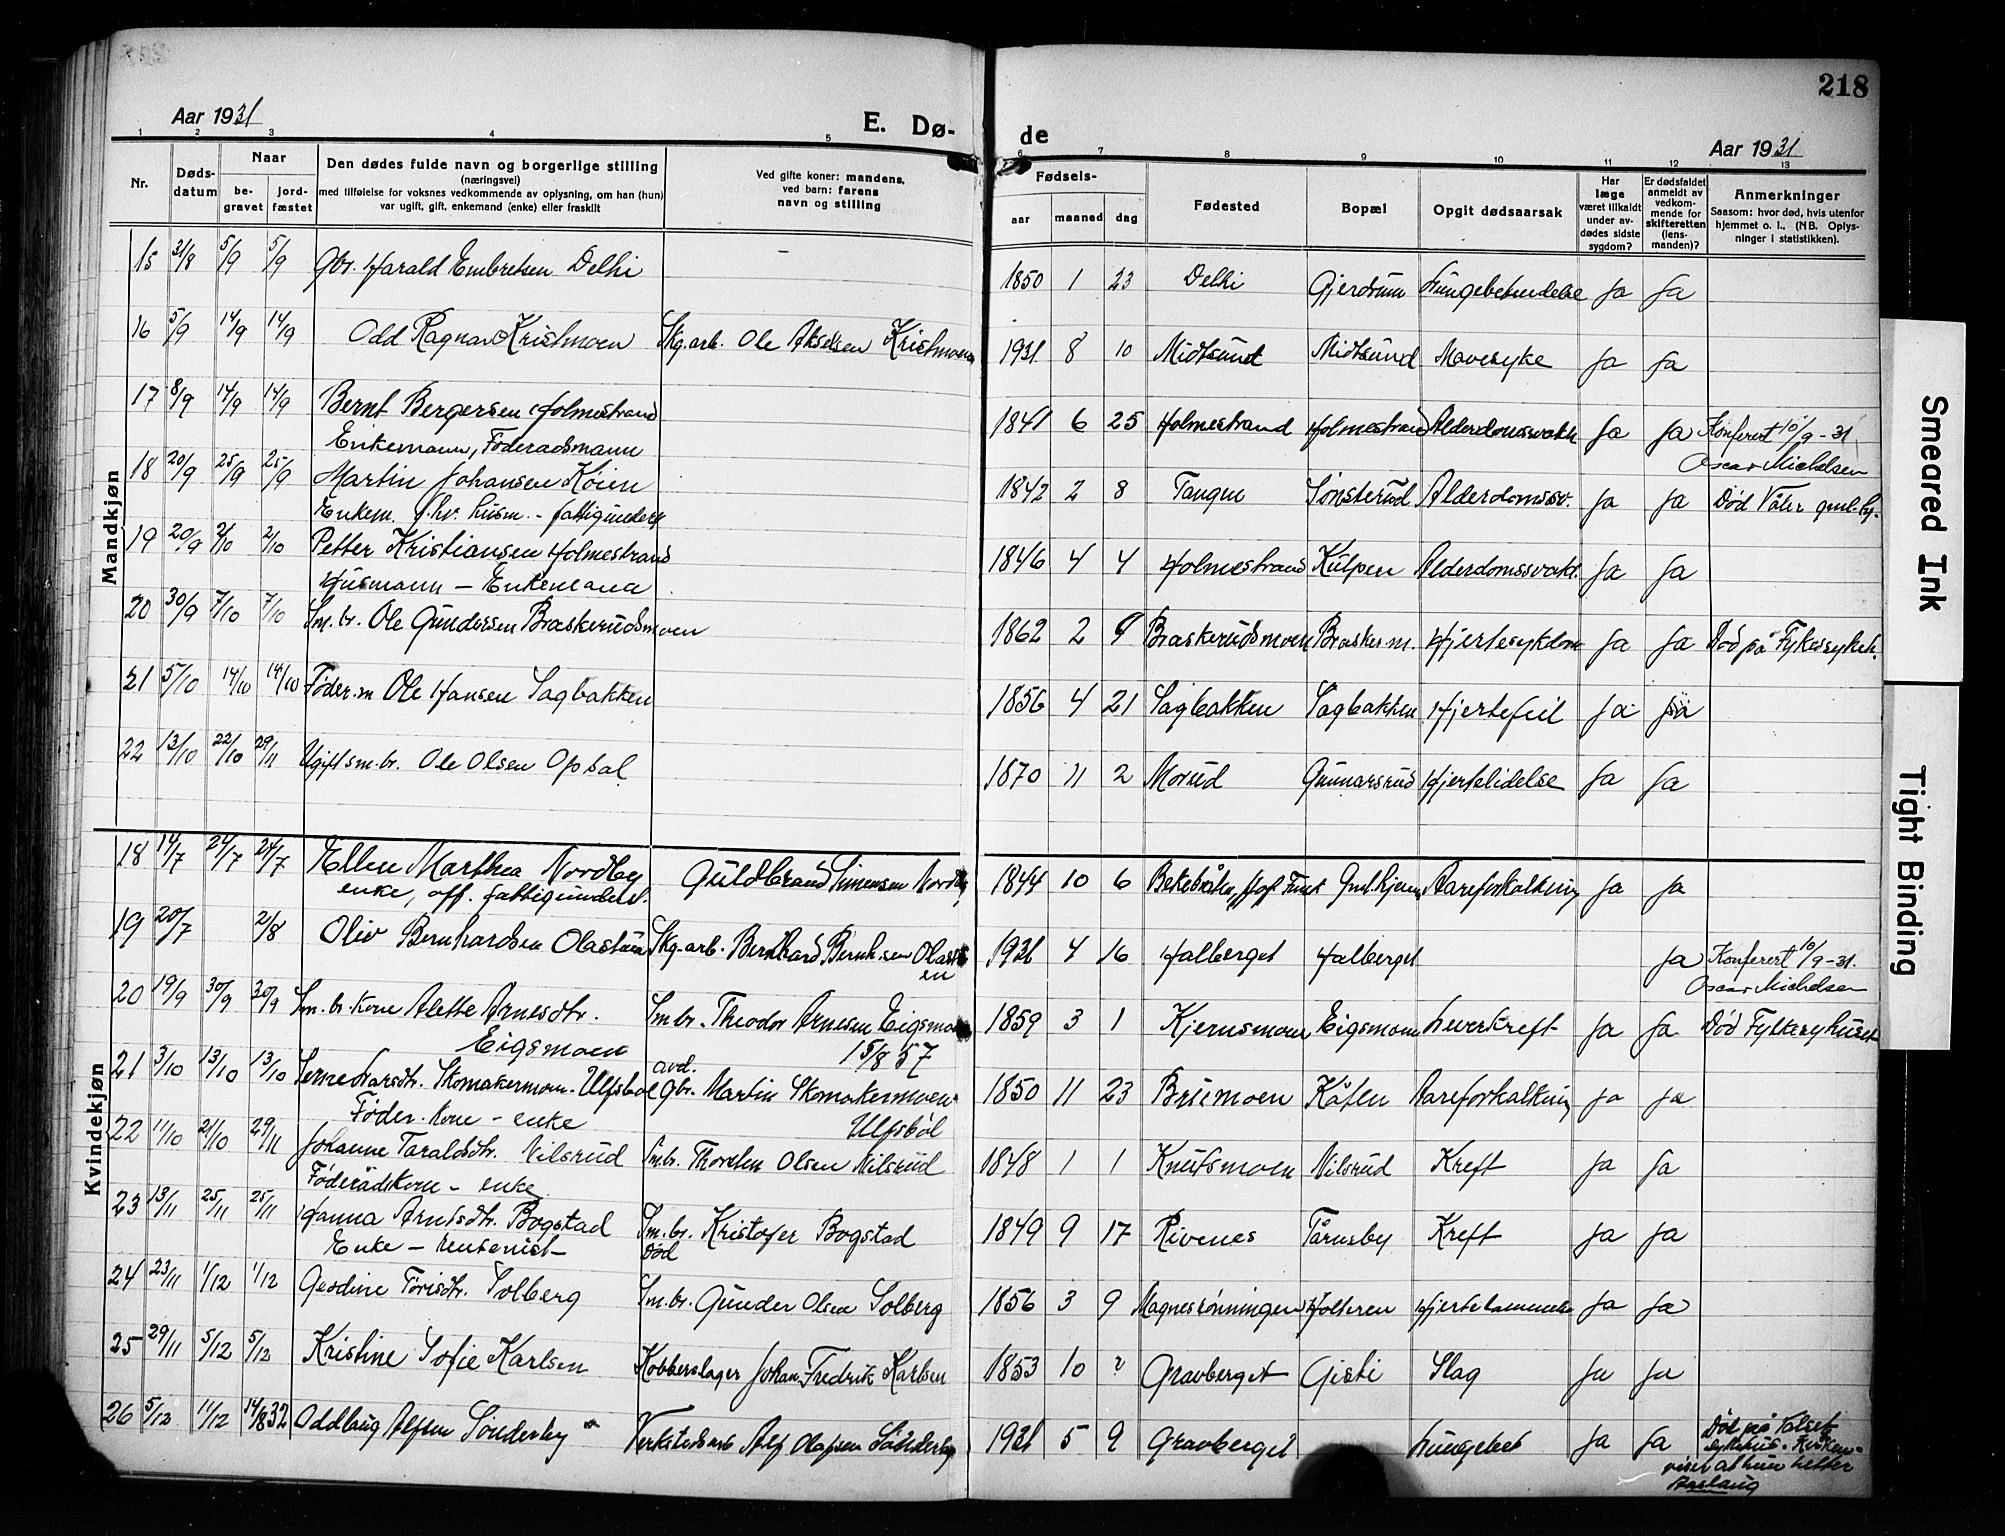 218
Aar 1931
E. Dø-
de
Aar 1931
1 2 3 4 5 6 7 8 9 10 11 12 13
Nr.
Døds-
datum
Naar
be-
gravet
jord-
fæstet
Den dødes fulde navn og borgerlige stilling
(næringsvei)
med tilføielse for voksnes vedkommende av oplysning, om han (hun)
var ugift, gift, enkemand (enke) eller fraskilt
Ved gifte koner: mandens,
ved barn: farens
navn og stilling
Fødsels-
aar
maaned
dag
Fødested
Bopæl
Opgit dødsaarsak
Har
læge
været tilkaldt
under av-
dødes sidste
sygdom?
Er dødsfaldet
anmeldt av
vedkom-
mende for
skifteretten
(lens-
manden)?
Anmerkninger
Saasom: hvor død, hvis utenfor
hjemmet o. l., (NB. Oplys-
ninger i statistikken).
Mandkjøn
15 31/8 5/9 5/9 Gbr. Harald Embretsen Delhi - 1850 1 23 Delhi Gjerdrum Lungebetendelse Ja Ja
16 5/9 14/9 14/9 Odd Ragnar Kristmoen Skg.arb. Ole Akselsen Kristmoen 1931 8 10 Midtsund Midtsund Mavesyke Ja Ja
17 8/9 14/9 14/9 Bernt Bergersen Holmestrand 1841 6 25 Holmestrand Holmestrand Alderdomssvakh Ja Ja Konferert 10/9-31.
Enkemann, Føderaadsmann Oscar Michelsen
18 20/9 25/9 25/9 Martin Johansen Køien 1842 2 8 Tangen Sønsterud Alderdomssv. Ja Ja Død Våler gml.hj.
Enkem. f.hv. husm. - fattigunderst
19 20/9 2/10 2/10 Petter Kristiansen Holmestrand 1846 4 4 Holmestrand Kulpen Alderdomssvakh. Ja Ja
Husmann - Enkemann
20 30/9 7/10 7/10 Sm.br. Ole Gundersen Braskerudsmoen 1862 2 9 Braskerudsmoen Brasker.m. Hjertesykdom Ja Ja Død på Fylkessykeh.
21 5/10 14/10 14/10 Føder.m Ole Hansen Sagbakken 1856 4 21 Sagbakken Sagbakken Hjertefeil Ja Ja
22 13/10 22/10 29/11 Ugift sm.br. Ole Olsen Opsal 1870 11 2 Morud Gunnarsrud Hjertelidelse Ja Ja
Kvindekjøn
18 14/7 24/7 24/7 Ellen Marthea Nordby Guldbrand Simensen Nordby 1844 10 6 Gml.hjem Aareforkalkning Ja Ja
enke, off. fattigunderst.
19 20/7 2/8 Oliv Bernhardsen Olastuen Skg.arb. Bernhard Bernh.sen Olastu 1931 4 16 Halberget Halberget Ja Konferert 10/9-31.
en Oscar Michelsen
20 19/9 30/9 30/9 Sm.br.kone Alette Arnesdtr. Sm.br. Theodor Arnesen Eigsmoen 1859 3 1 Kjernsmoen Eigsmoen Leverkreft Ja Ja Død Fylkesyhuset
Eigsmoen 15/8 57
21 3/10 13/10 13/10 Skomakermoen. Ulfsbøl avd. Gbr. Martin Skomakermoen 1850 11 23 Brumoen Kåten Aareforkalkning Ja Ja
Føder.kone - enke Ulfsbøl
22 11/10 21/10 29/11 Johanne Taraldsdtr. Nilsrud Sm.br. Thorsten Olsen Nilsrud 1848 1 1 Knutsmoen Nilsrud Kreft Ja Ja
Føderådskone - enke
23 13/11 25/11 25/11 Hanna Arntsdtr. Bogstad Sm.br. Kristofer Bogstad 1849 9 17 Rivenes Tårnsby Kreft Ja Ja
Enke - rentenist død
24 23/11 1/12 1/12 Gerdine Torisdtr. Solberg Sm.br. Gunder Olsen Solberg 1856 3 9 Magnesrønningen Holteren Hjertelammelse Ja Ja
25 29/11 5/12 5/12 Kristine Sofie Karlsen Kobberslager Johan Fredrik Karlsen 1853 10 ? Gravberget Gisti Slag Ja Ja
26 5/12 11/12 14/8 32 Oddlaug Alfsen Sønderby Verkstedsarb Alf Olafsen Sønderby 1931 5 9 Gravberget Lungebet Ja Ja Død på
sykehus.
viser at hun hetter
Aaslaug
Smeared Ink
Tight Binding